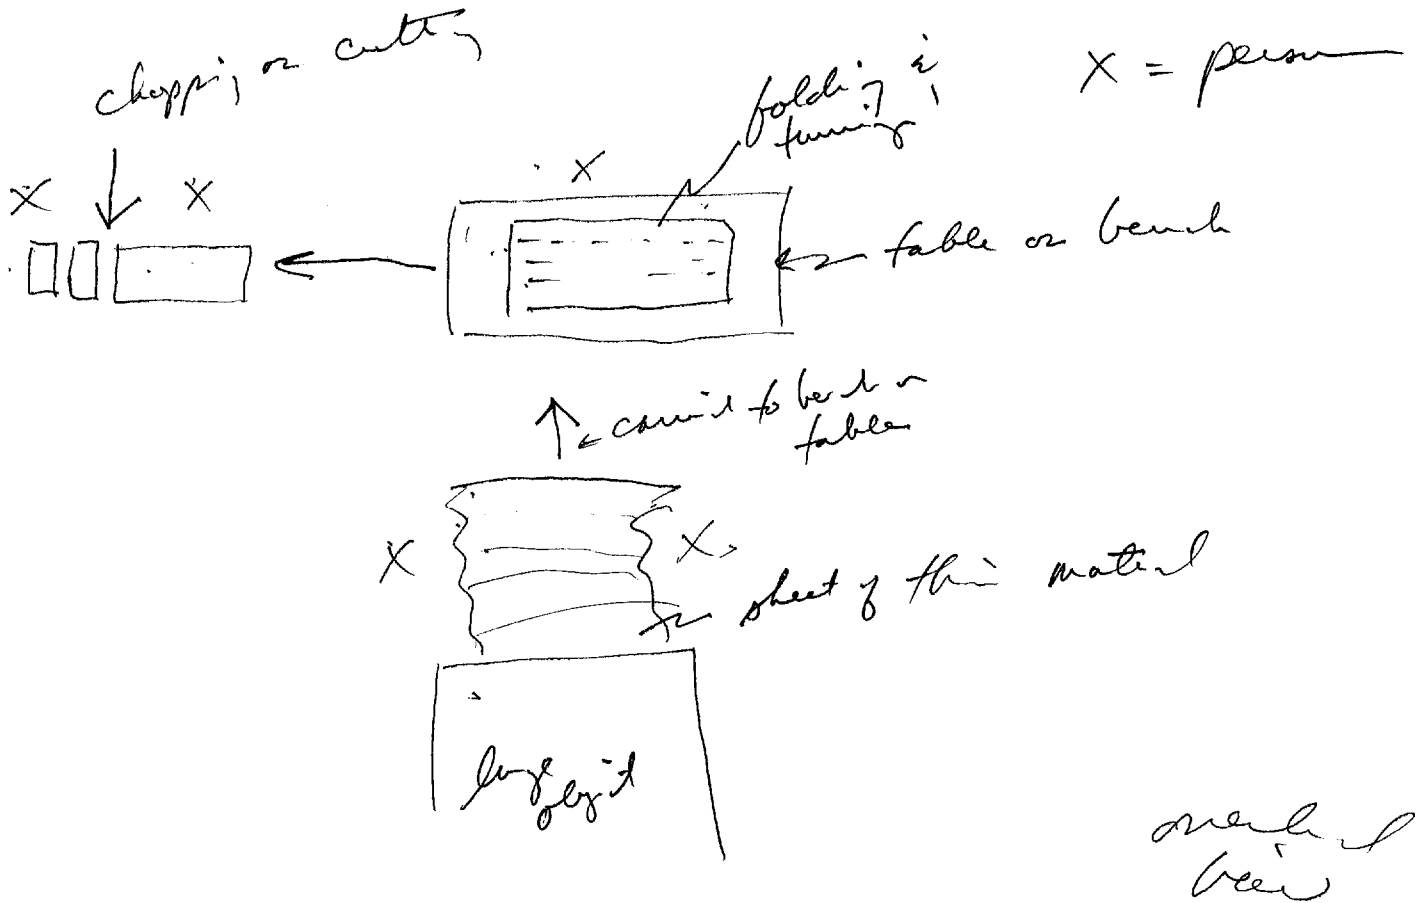 chopping or cutting
folding &
turning
X = person
X
X
X
table or bench
carried to bench or
table
X
X
sheet of thin material
large
object
overhead
view